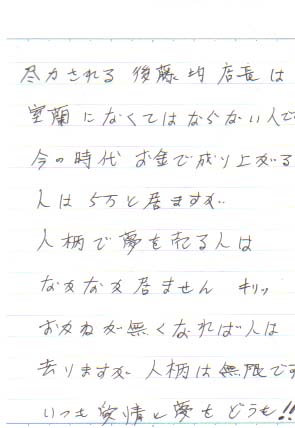 尽力される 後藤均 店長 は
室蘭 になくてはならない人で
今の時代 お金で成り上がる
人は 5万と居ますが
人柄で夢を売る人は
なかなか居ません キリッ
おかねが無くなれば人は
去りますが 人柄は無限です
いつも 愛情と夢を どうも!!